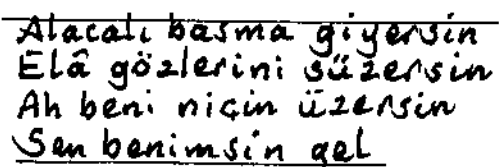 Alacalı basma giyersin
Elâ gözlerini süzersin
Ah beni niçin üzersin
Sen benimsin gel